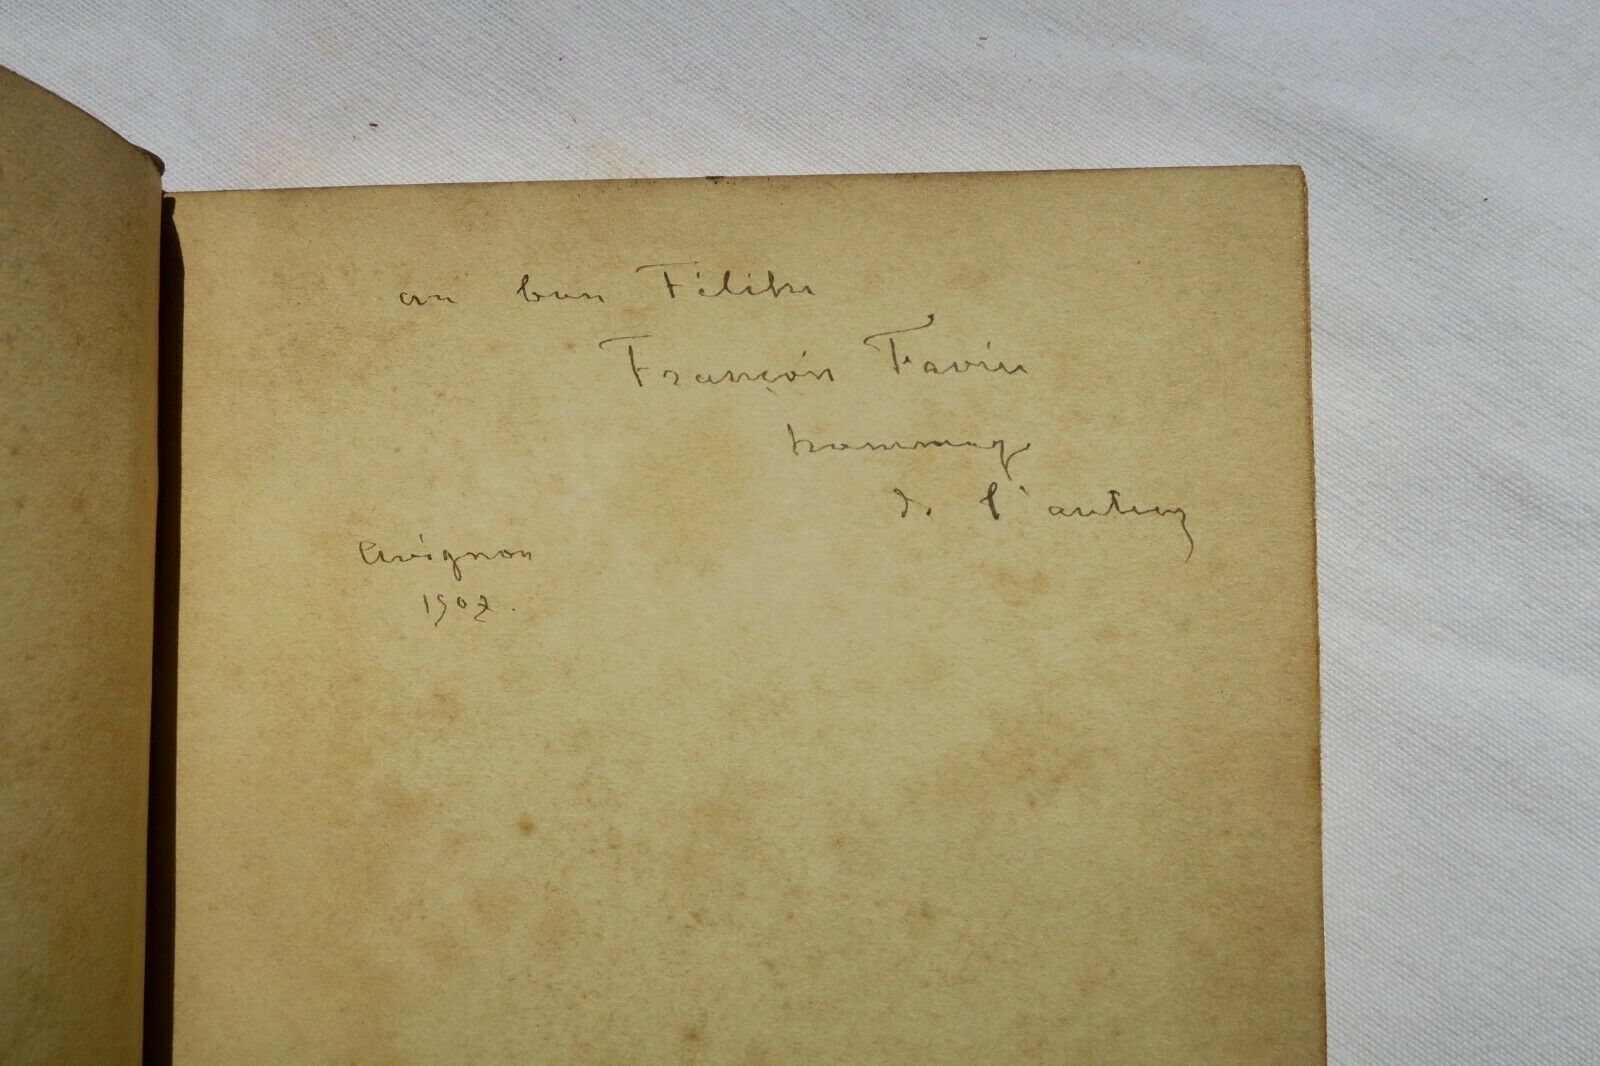 au bon Félibre
Françóis Favier
hommage
de l'auteur
Avignon
1907.